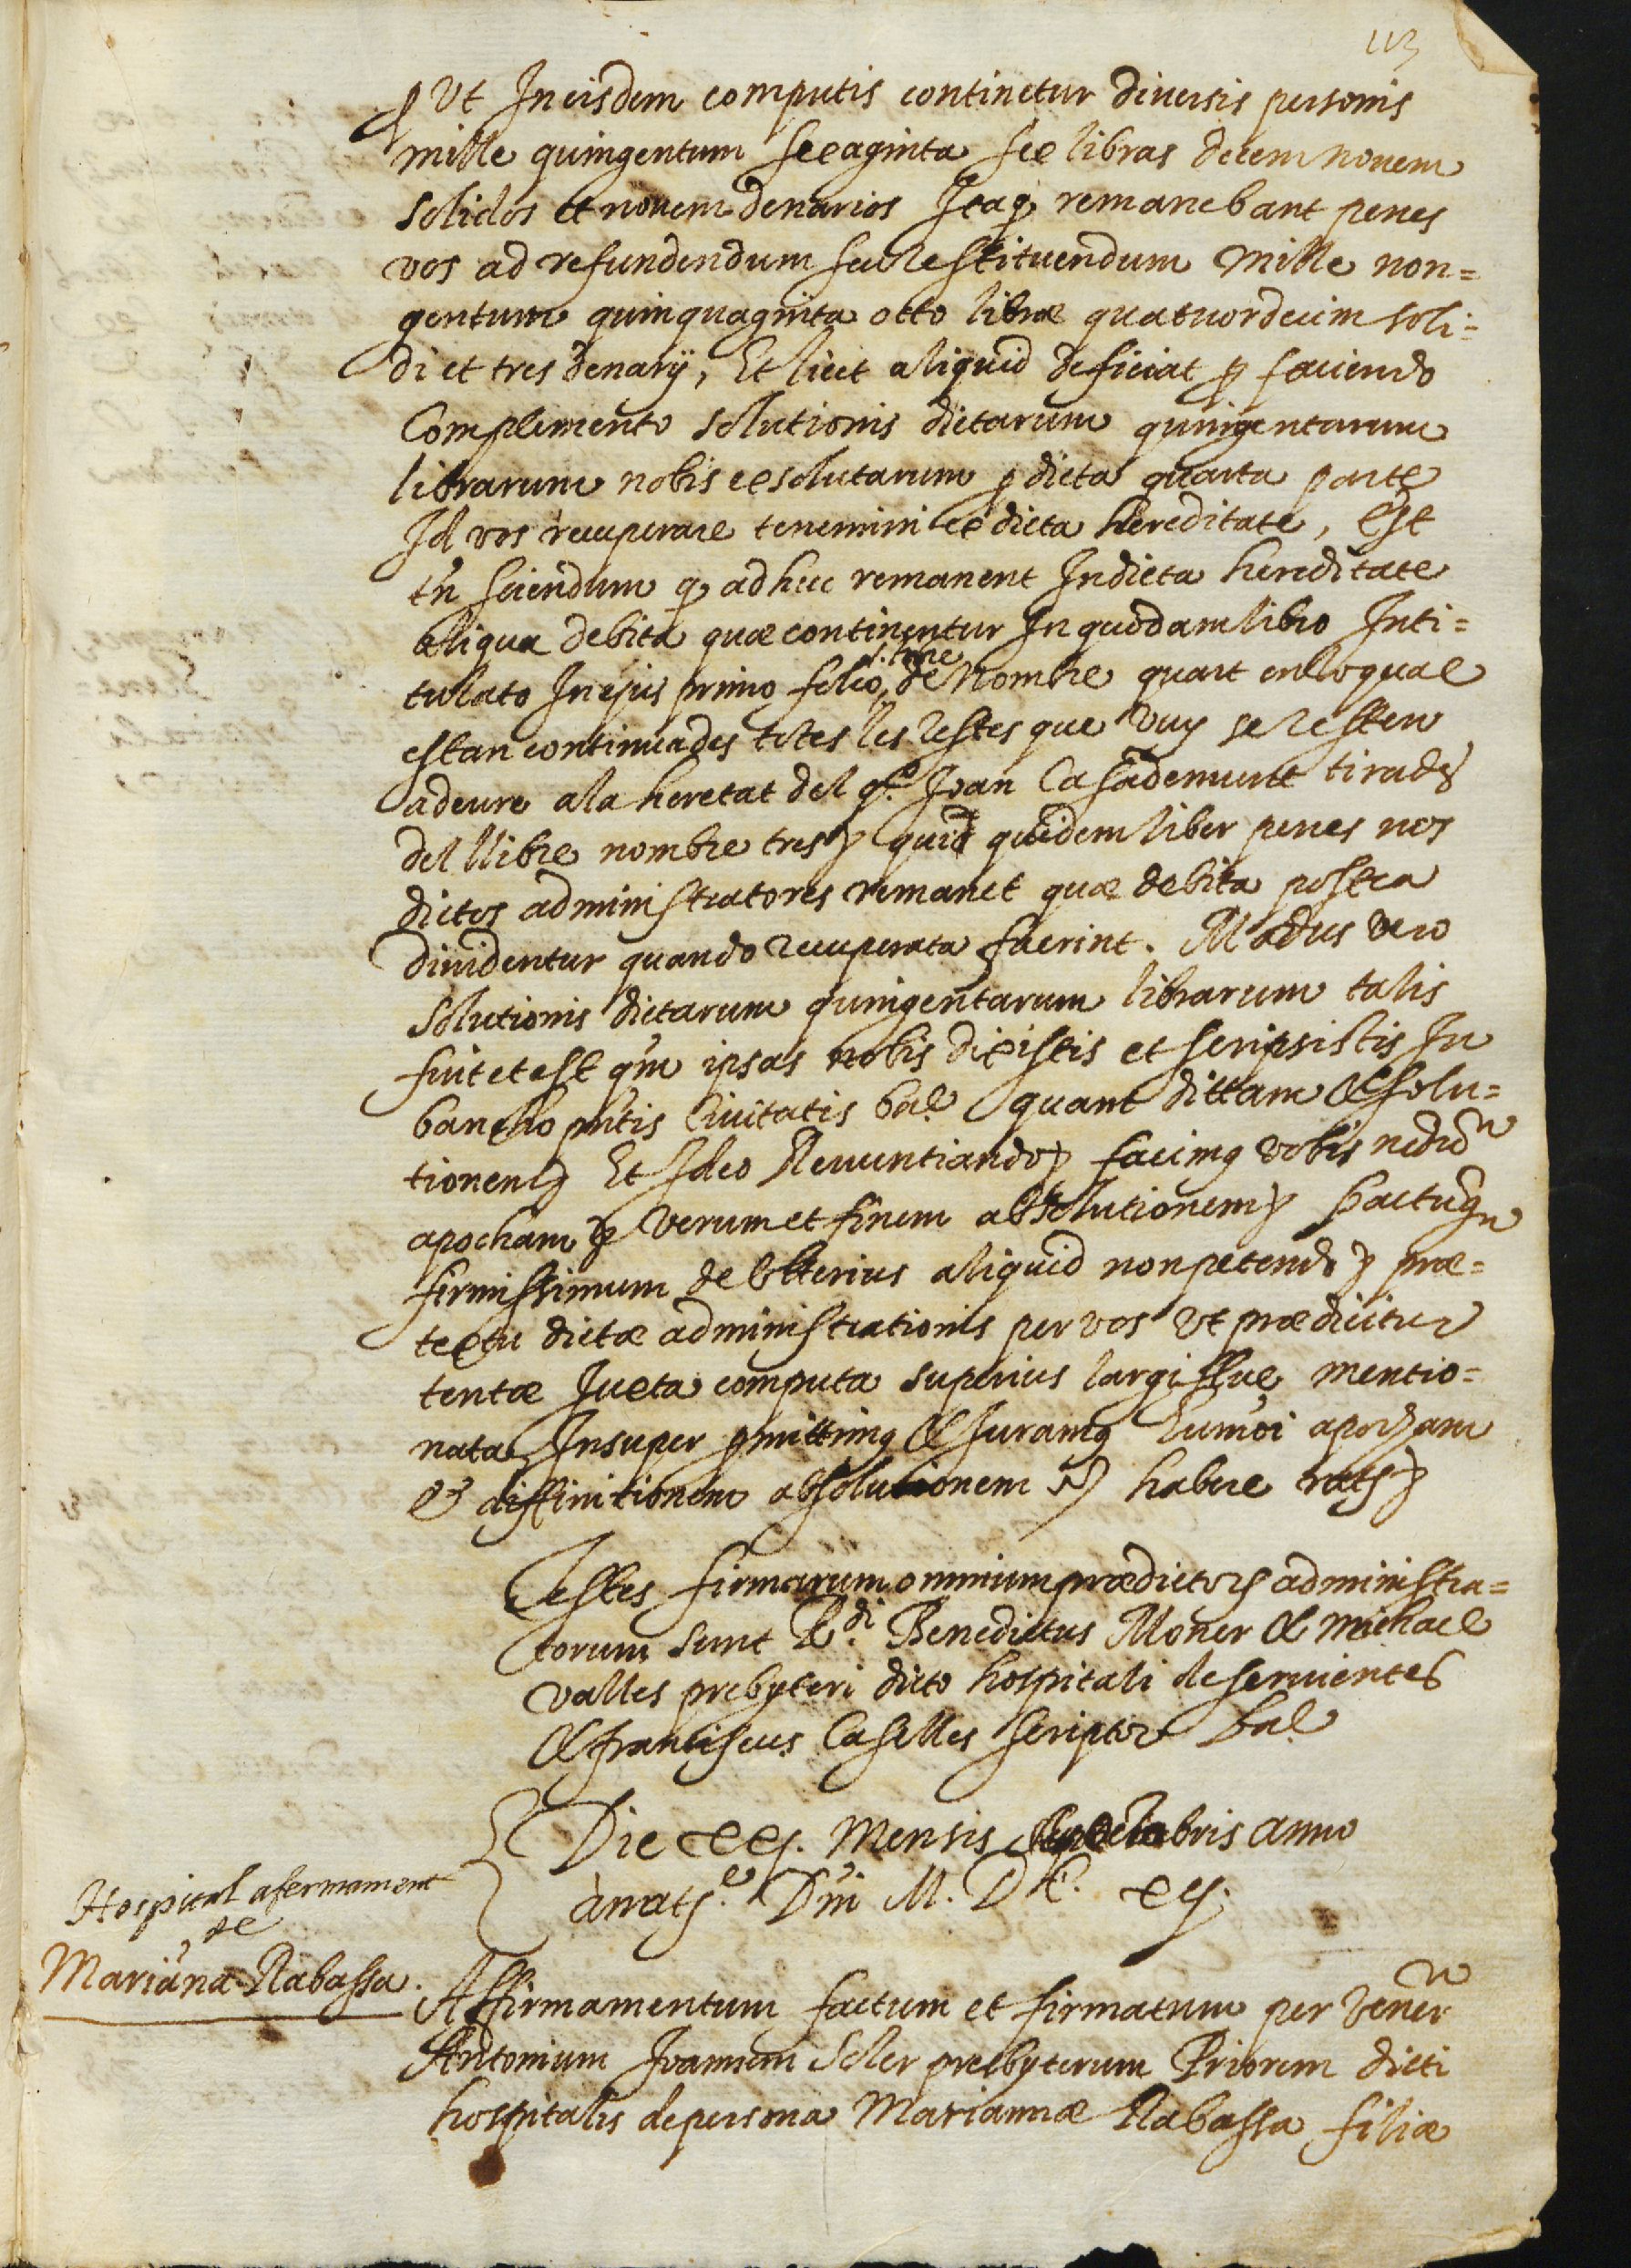 113
Ut In eisdem computis continetur diversis personis
mille quingentum sexaginta sex libras decem novem
solidos et novem denarios Itaq remanebant penes
vos ad refundendum seu restituendum mille non=
gentum quinquaginta octo libræ quatuordecim soli=
di et tres denarij, Et licet aliquid deficiat p faciendo
Complemento solutionis dictarum quingentarum
librarum nobis exsolutarum p dicta quarta parte
Id vos recuperare tenemini ex dicta hereditate, Est
tñ sciendum q adhuc remanent In dicta hereditate
aliqua debita quæ continentur In quodam libro Inti=
tulato In ejus primo folio, llibre de Nombre quart en lo qual
estan continuades totes les restes que vuy se resten
a deure a la heretat del q.º Joan Casademunt tirades
del llibre nombre tres quid quidem liber penes nos
dictos administratores remanet quæ debita postea
dividentur quando recuperata fuerint. Modus vero
solutionis dictarum quingentarum librarum talis
fuit et est qm ipsas nobis dixistis et scripsistis In
bancho pntis Civitatis bar quant dittam & solu=
tionem Et Ideo Renuntiando facimq vobis nedũ
apocham verum et finem absolutionem pactumq
firmissimum de ulterius aliquid non petendo præ=
textu dictæ administrationis per vos ut prædicitur
tentæ Juxta computa superius largissime mentio=
nata Insuper pmittimq & Juramq humõi apocham
& diffinitionem absolutionem habere rats
Testes firmarum omnium prædictorũ administra=
torum sunt R.di Benedictus Moner & Michael
valles prebyteri dicto hospitali deservientes
& franciscus Caselles scriptor bar
Die xxj. Mensis bris anno
a natte. Dñi M. D C. xxj.
Hospital afermament
de
Mariana Rabassa.
Affirmamentum factum et firmatum per Vener
Antonium Joannem Soler presbyterum Priorem dicti
hospitalis de persona Mariannæ Rabassa filiæ